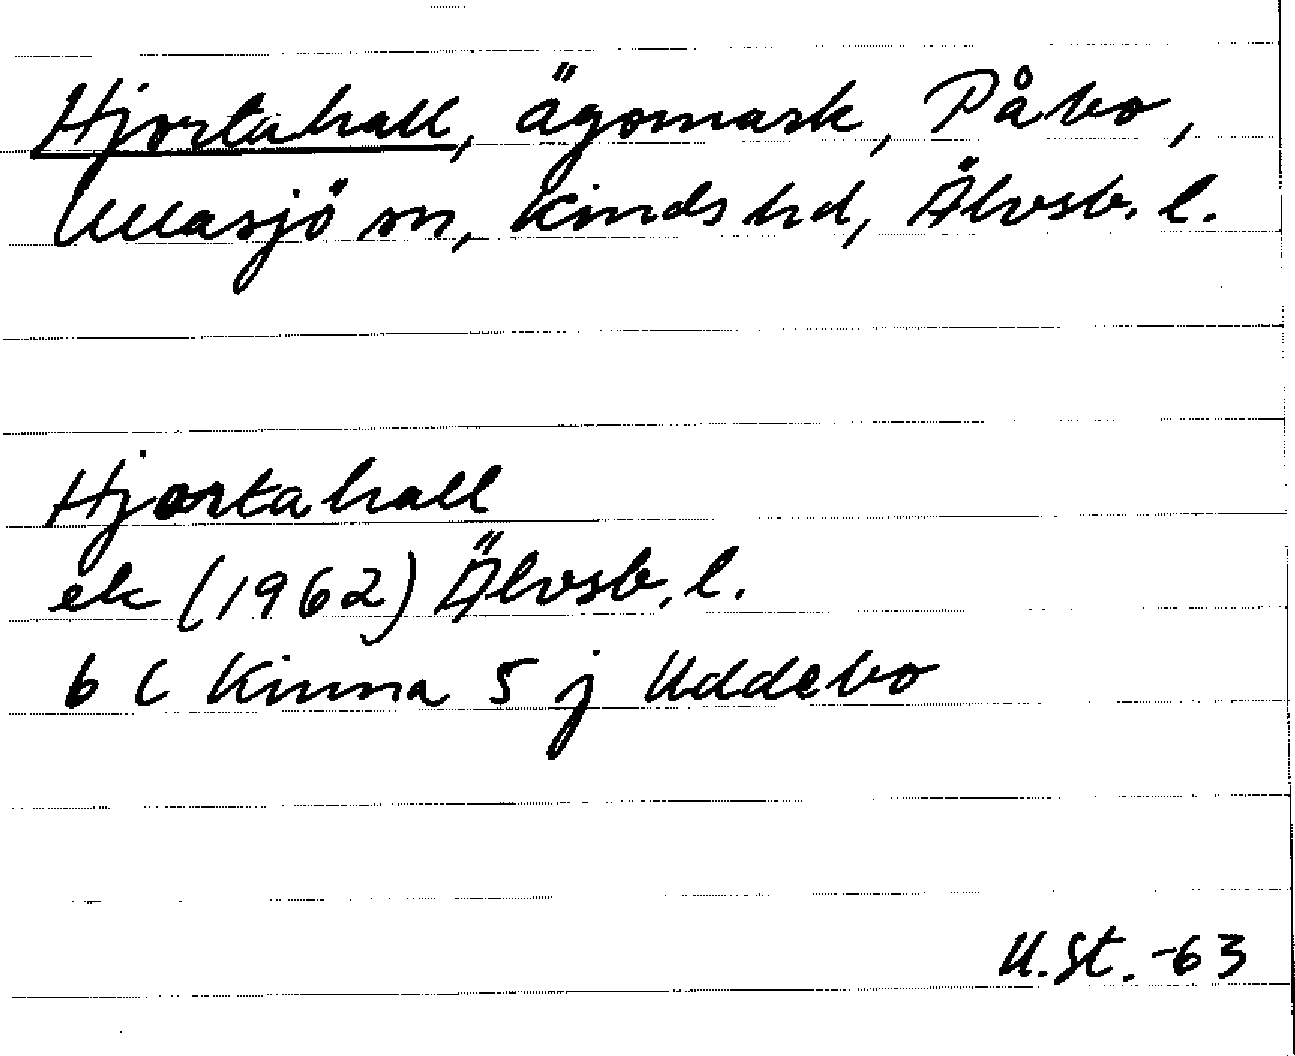 Hjortahall, ägomark, Påbo,
Ullasjö sn, Kinds hd, Älvsb. l.
Hjortahall
ek (1962) Älvsb. l.
6 C Kinna 5 j Uddebo
U.St. -63